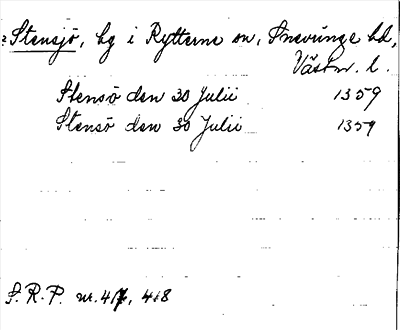 ? Stensjö, hg i Rytterne sn, Snevringe hd,
Västm. l.
Stensö den 30 Julii 1359
Stensö den 30 Julii 1359
S.R.P. nr. 417, 418